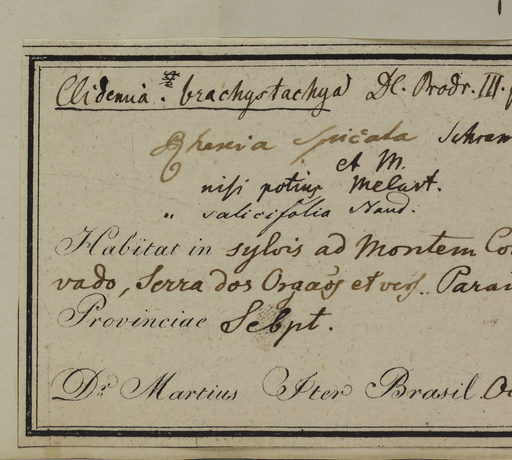 Clidemia . brachystachya DC. Prodr. III. p
Rhexia spicata Schran
et M.
nisi potius Melast.
" salicifolia Naud.
Habitat in sylvis ad Montem Co
vado, Serra dos Orgaõs et vers. Parai
Provinciae Sebpt.
Dr. Martius Iter Brasil. Oc